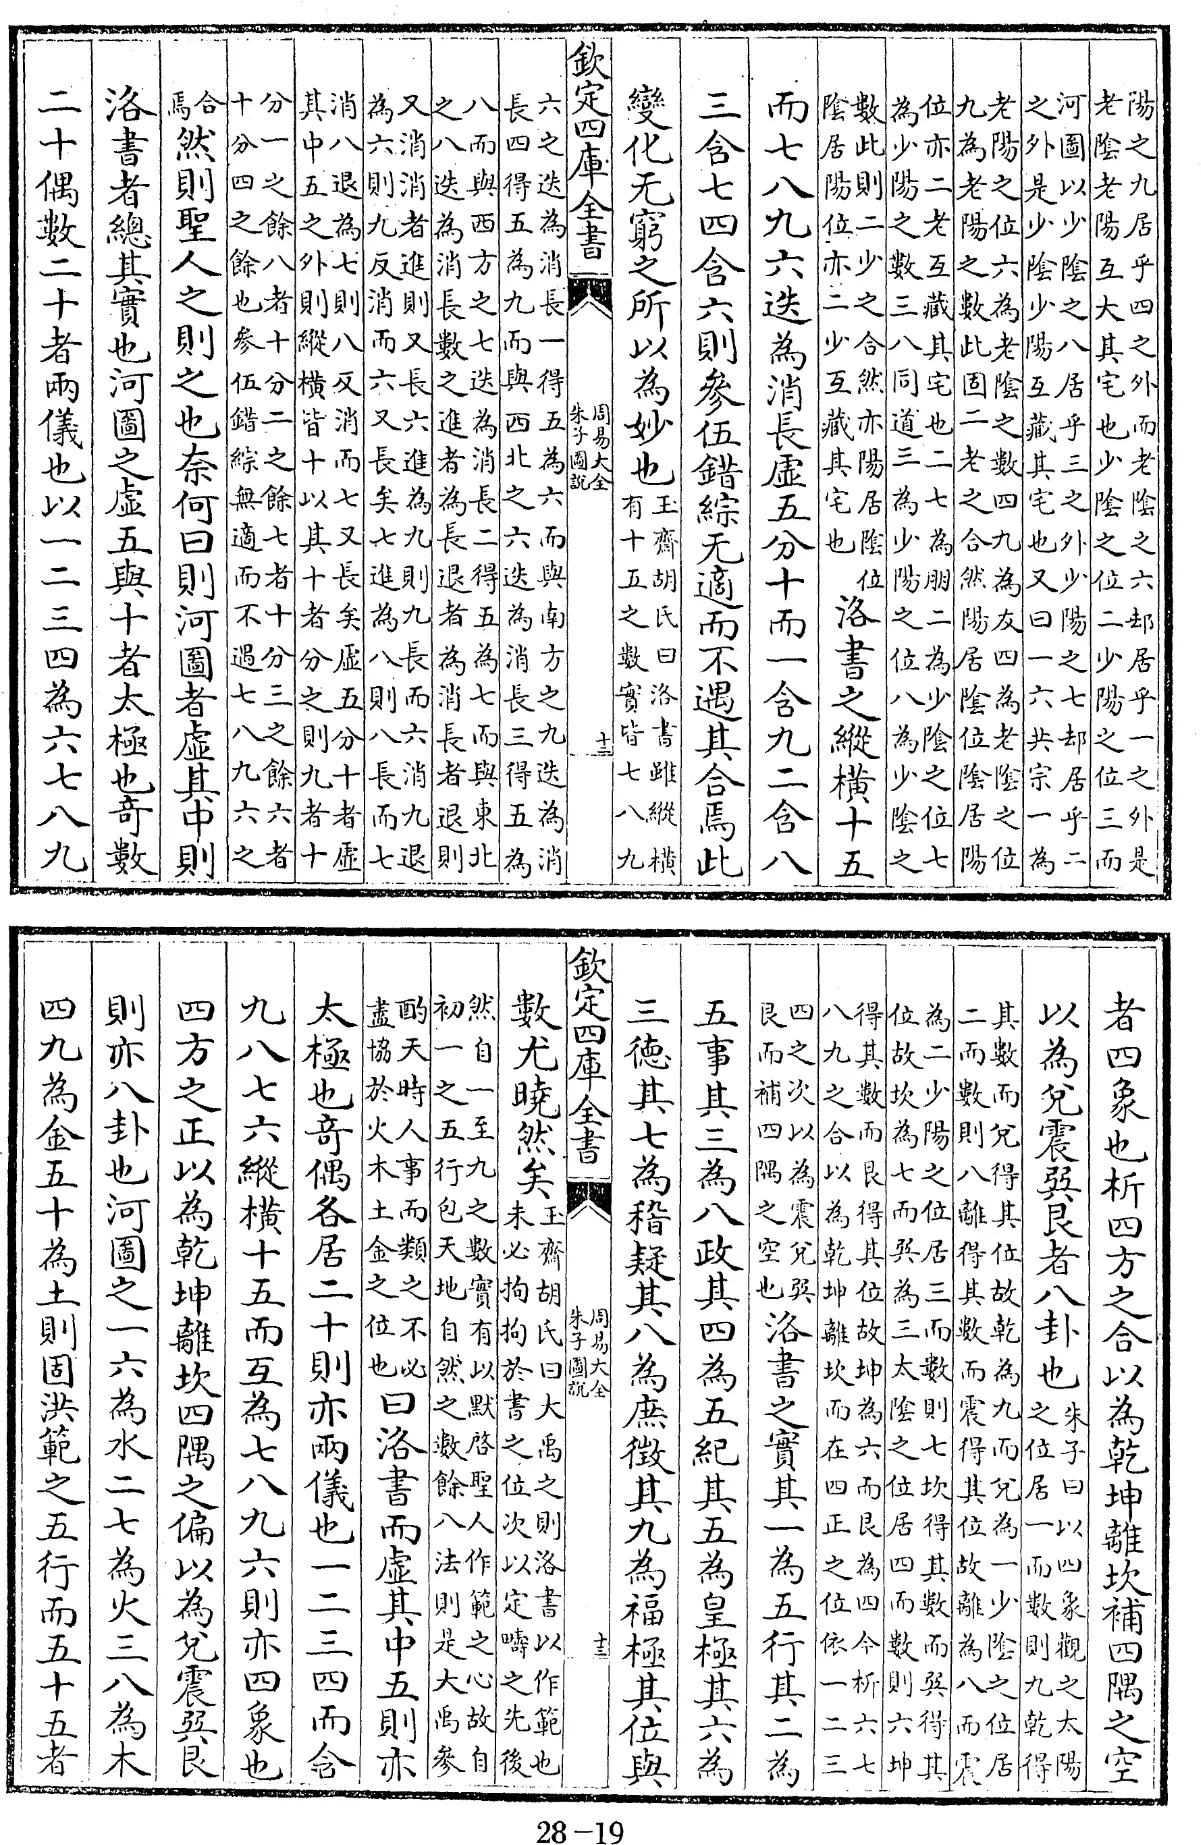 陽之九居乎四之外而老陰之六却居乎一之外是
老陰老陽互大其宅也少陰之位二少陽之位三而
河圖以少陰之八居乎三之外少陽之七却居乎二
之外是少陰少陽互藏其宅也又曰一六共宗一為
老陽之位六為老陰之數四九為友四為老陰之位
九為老陽之數此固二老之合然陽居陰位陰居陽
位亦二老互藏其宅也二七為朋二為少陰之位七
為少陽之數三八同道三為少陽之位八為少陰之
數此則二少之合然亦陽居陰位
陰居陽位亦二少互藏其宅也
洛書之縱橫十五
而七八九六迭為消長虛五分十而一含九二含八
三含七四含六則參伍錯綜无適而不遇其合焉此
變化无窮之所以為妙也
玉齋胡氏曰洛書雖縱橫
有十五之數實皆七八九
欽定四庫全書
周易大全
朱子圖說
十二
六之迭為消長一得五為六而與南方之九迭為消
長四得五為九而與西北之六迭為消長三得五為
八而與西方之七迭為消長二得五為七而與東北
之八迭為消長數之進者為長退者為消長者退則
又消消者進則又長六進為九則九長而六消九退
為六則九反消而六又長矣七進為八則八長而七
消八退為七則八反消而七又長矣虛五分十者虛
其中五之外則縱橫皆十以其十者分之則九者十
分一之餘八者十分二之餘七者十分三之餘六者
十分四之餘也參伍錯綜無適而不遇七八九六之
合
焉
然則聖人之則之也奈何曰則河圖者虛其中則
洛書者總其實也河圖之虛五與十者太極也奇數
二十偶數二十者兩儀也以一二三四為六七八九
者四象也析四方之合以為乾坤離坎補四隅之空
以為兌震巽艮者八卦也
朱子曰以四象觀之太陽
之位居一而數則九乾得
其數而兌得其位故乾為九而兌為一少陰之位居
二而數則八離得其數而震得其位故離為八而震
為二少陽之位居三而數則七坎得其數而巽得其
位故坎為七而巽為三太陰之位居四而數則六坤
得其數而艮得其位故坤為六而艮為四今析六七
八九之合以為乾坤離坎而在四正之位依一二三
四之次以為震兌巽
艮而補四隅之空也
洛書之實其一為五行其二為
五事其三為八政其四為五紀其五為皇極其六為
三德其七為稽疑其八為庶徵其九為福極其位與
欽定四庫全書
周易大全
朱子圖說
十三
數尤曉然矣
玉齋胡氏曰大禹之則洛書以作範也
未必拘拘於書之位次以定疇之先後
然自一至九之數實有以默啓聖人作範之心故自
初一之五行包天地自然之數餘八法則是大禹參
酌天時人事而類之不必
盡協於火木土金之位也
曰洛書而虛其中五則亦
太極也奇偶各居二十則亦兩儀也一二三四而含
九八七六縱橫十五而互為七八九六則亦四象也
四方之正以為乾坤離坎四隅之偏以為兌震巽艮
則亦八卦也河圖之一六為水二七為火三八為木
四九為金五十為土則固洪範之五行而五十五者
28-19